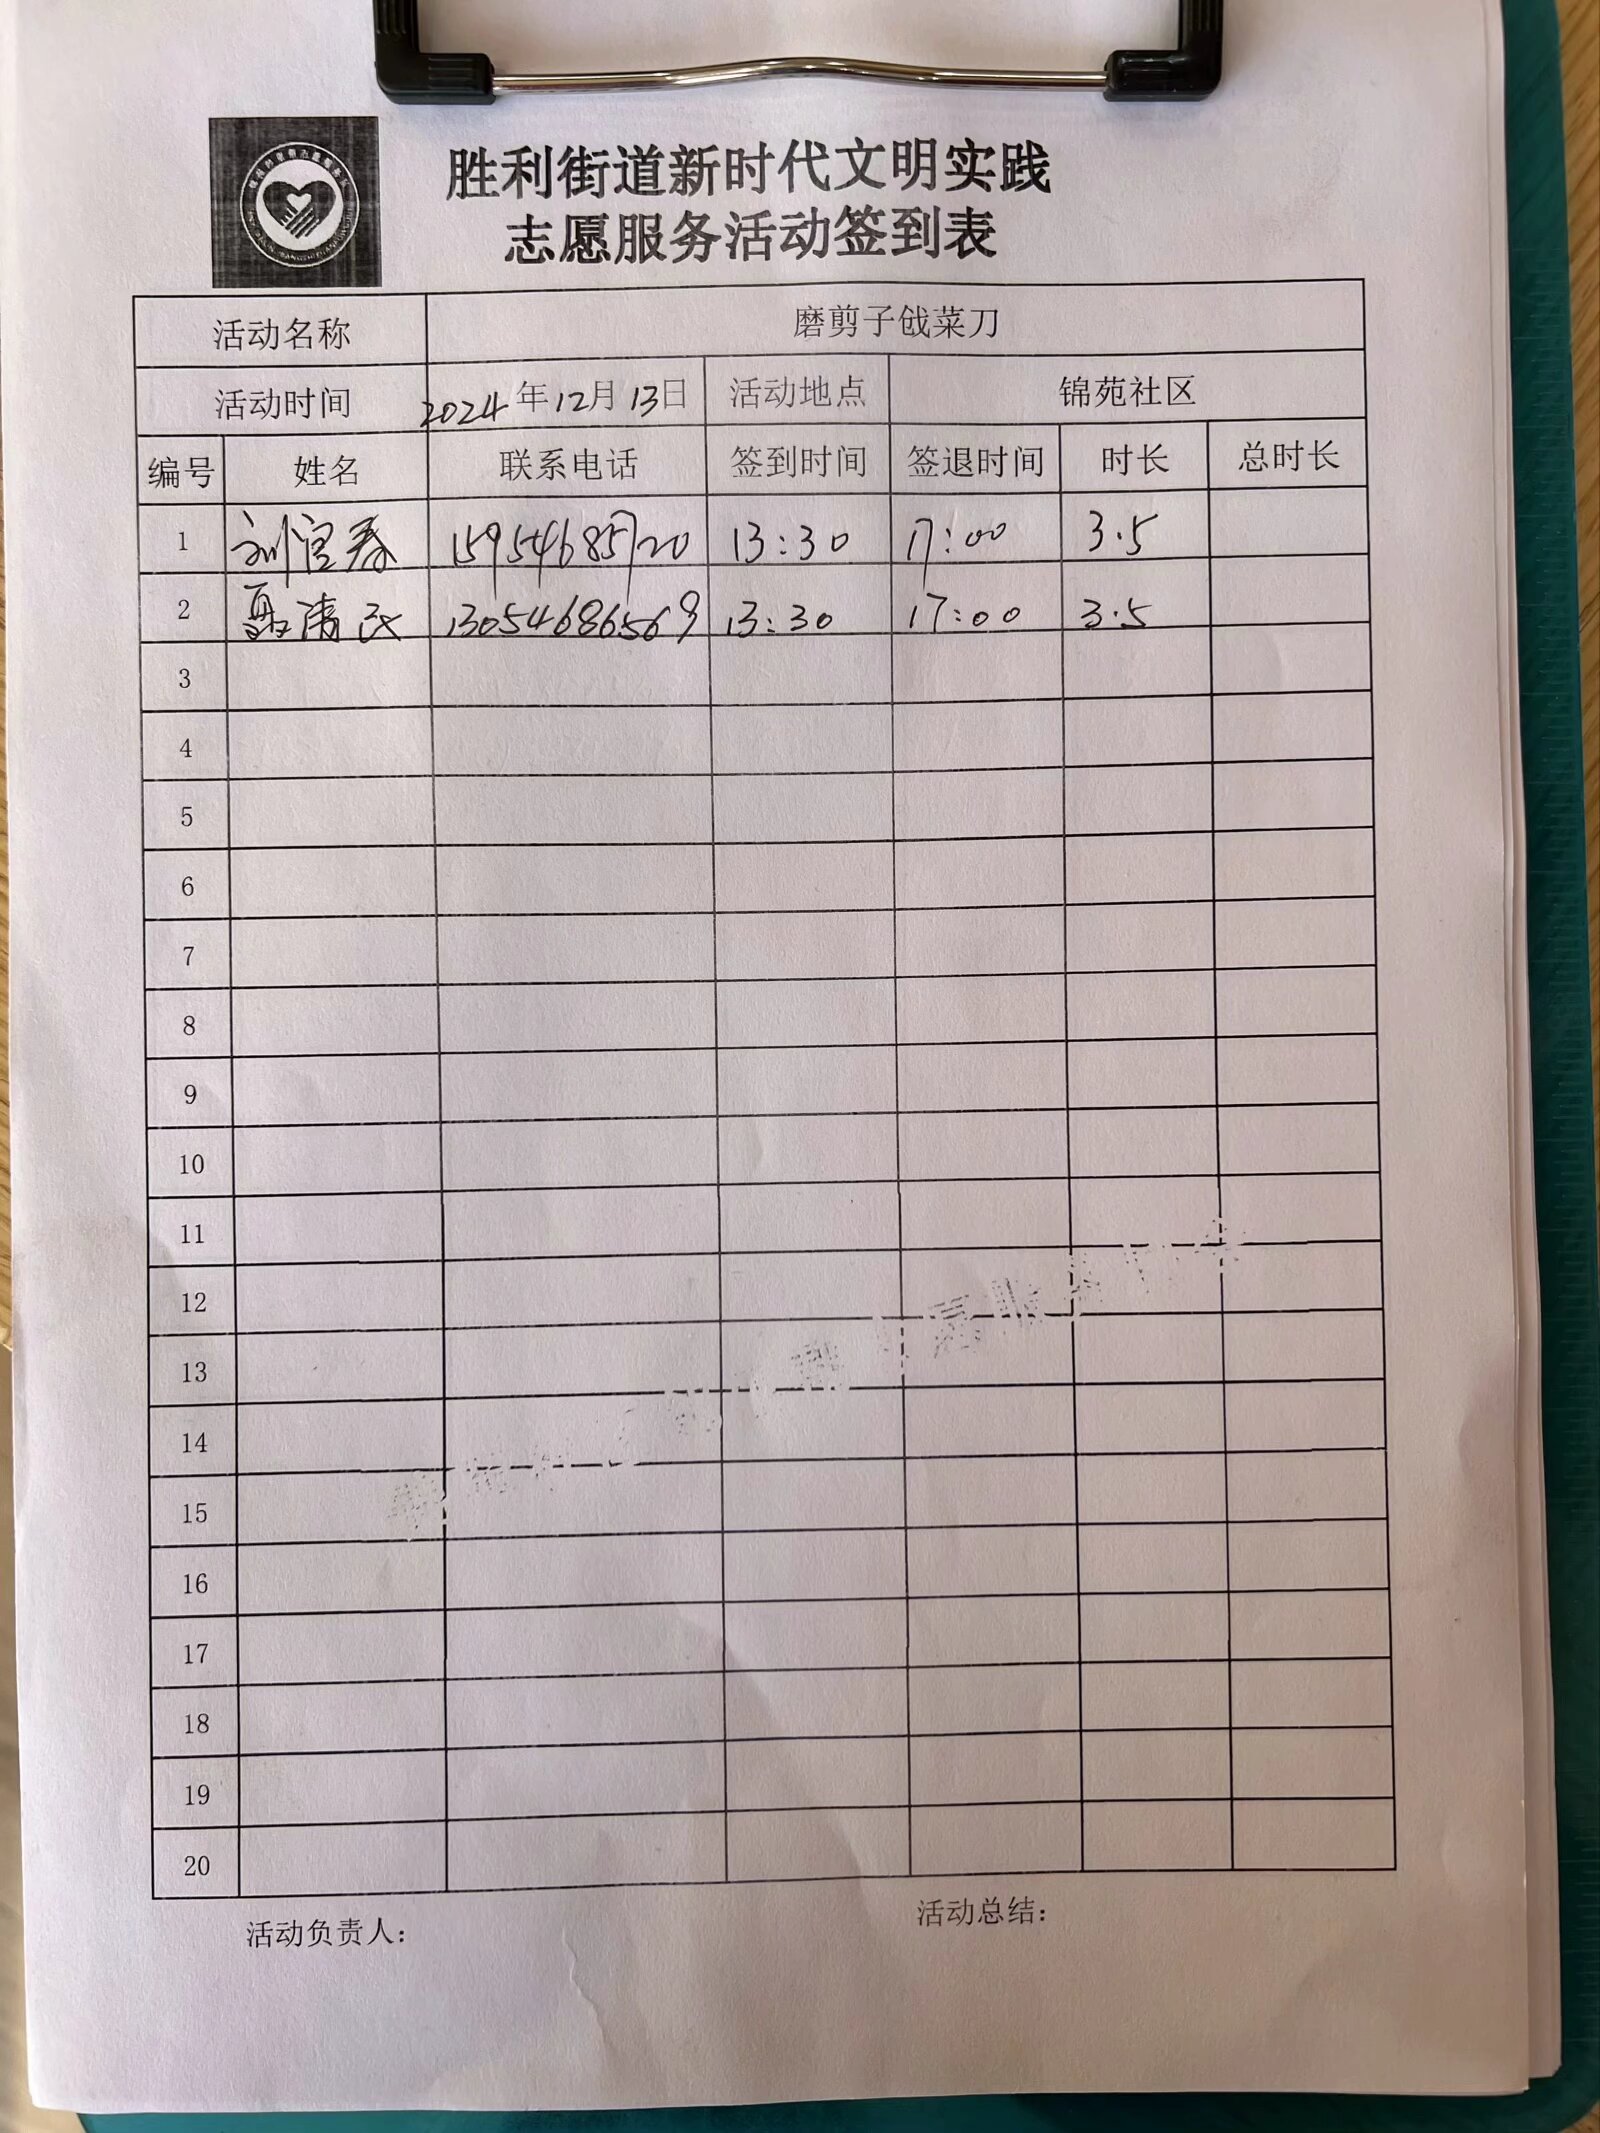 胜利街道新时代文明实践
志愿服务活动签到表
活动名称 磨剪子戗菜刀
活动时间 2024年12月13日 活动地点 锦苑社区
编号 姓名 联系电话 签到时间 签退时间 时长 总时长
1 刘宜春 15954685720 13:30 17:00 3.5
2 聂清民 13054686569 13:30 17:00 3.5
3
4
5
6
7
8
9
10
11
12
13
14
15
16
17
18
19
20
活动负责人： 活动总结：